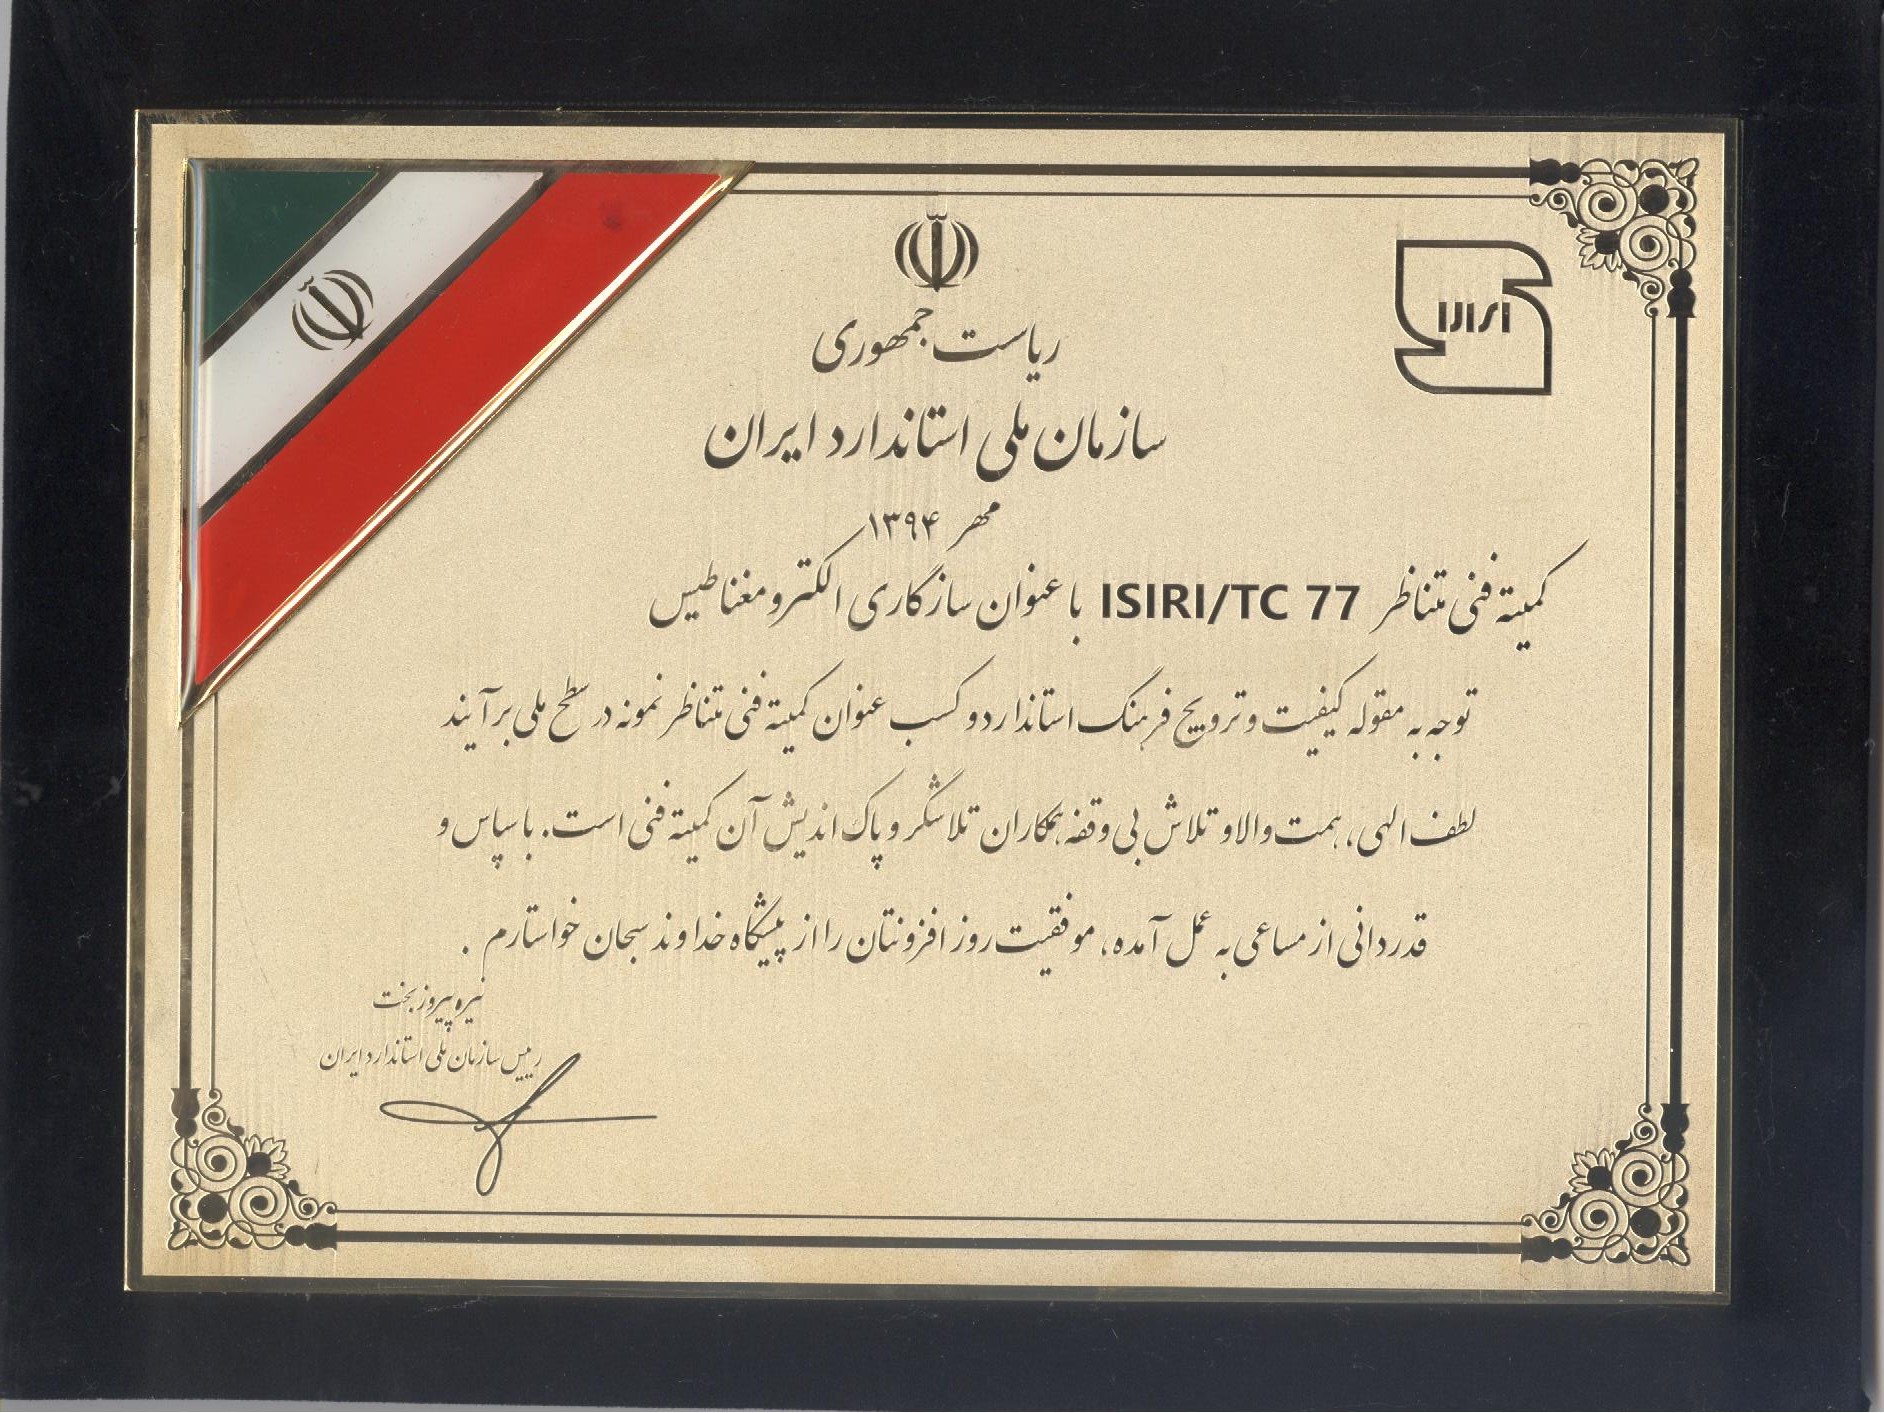 ریاست جمهوری
سازمان ملی استاندارد ایران
مهر ۱۳۹۴
کمیته فنی متناظر ISIRI/TC 77 با عنوان سازگاری الکترومغناطیس
توجه به مقوله کیفیت و ترویج فرهنگ استاندارد و کسب عنوان کمیته فنی متناظر نمونه در سطح ملی برآیند
لطف الهی، همت والا و تلاش بی وقفه همکاران تلاشگر و پاک اندیش آن کمیته فنی است. با سپاس و
قدردانی از مساعی به عمل آمده، موفقیت روز افزونتان را از پیشگاه خداوند سبحان خواستارم.
نیره پیروزبخت
رییس سازمان ملی استاندارد ایران